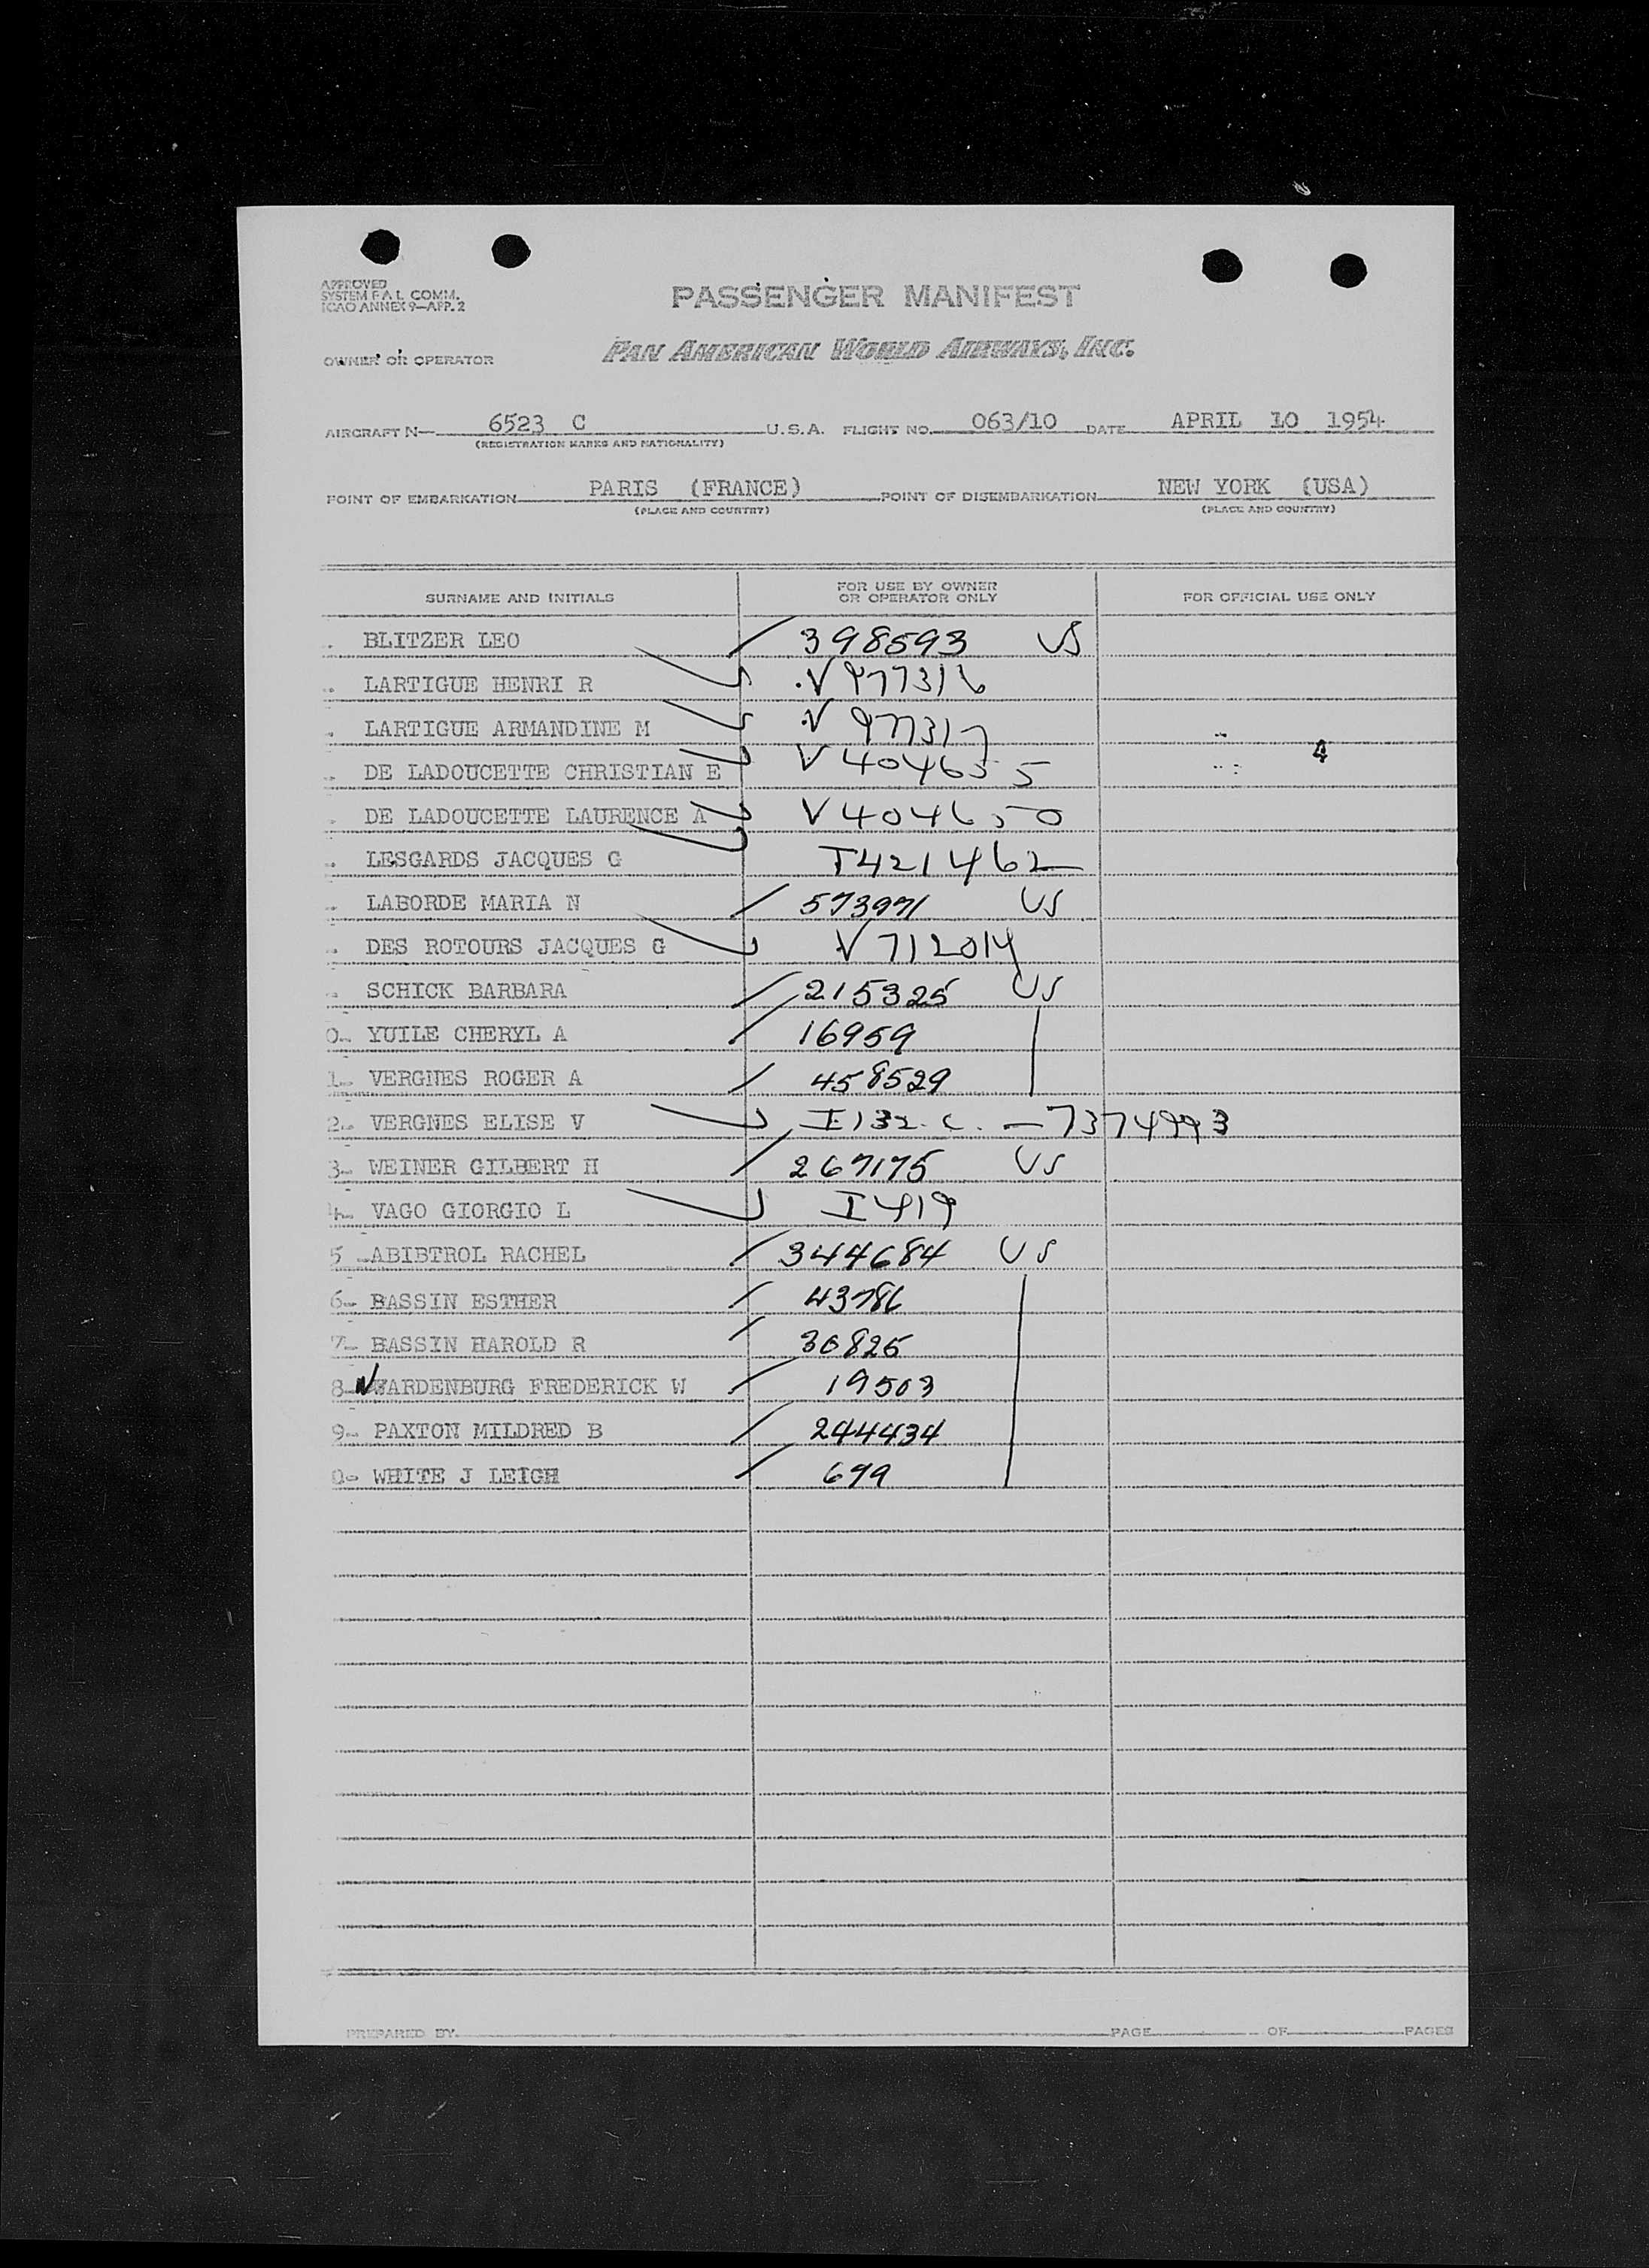 APPROVED
SYSTEM F.A.L. COMM.
ICAO ANNEX 9—APP. 2
PASSENGER MANIFEST
OWNER OR OPERATOR PAN AMERICAN WORLD AIRWAYS, INC.
AIRCRAFT N— 6523 C U.S.A. FLIGHT NO. 063/10 DATE APRIL 10 1954
(REGISTRATION MARKS AND NATIONALITY)
POINT OF EMBARKATION PARIS (FRANCE) POINT OF DISEMBARKATION NEW YORK (USA)
(PLACE AND COUNTRY) (PLACE AND COUNTRY)
SURNAME AND INITIALS FOR USE BY OWNER OR OPERATOR ONLY FOR OFFICIAL USE ONLY
BLITZER LEO 398593 US
LARTIGUE HENRI R V977316
LARTIGUE ARMANDINE M V 977317
4
DE LADOUCETTE CHRISTIAN E V404655
DE LADOUCETTE LAURENCE A V404650
LESGARDS JACQUES G T421462
LABORDE MARIA N 573971 US
DES ROTOURS JACQUES G V712014
SCHICK BARBARA 215325 US
0- YUILE CHERYL A 16959
1- VERGNES ROGER A 458529
2- VERGNES ELISE V I132.C. — 7374993
3- WEINER GILBERT H 267175 US
4- VAGO GIORGIO L I419
5 -ABIBTROL RACHEL 344684 US
6- BASSIN ESTHER 43786
7- BASSIN HAROLD R 30825
8- WARDENBURG FREDERICK W 19503
9- PAXTON MILDRED B 244434
0- WHITE J LEIGH 699
PREPARED BY PAGE OF PAGES